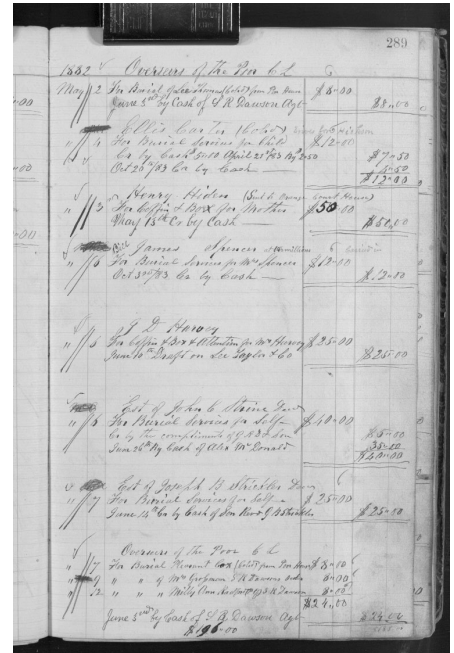 289
1882 Overseers of the Poor C L
May 2 For Burial of (Cold) from Poor House $8.00
June 5th by Cash of S R Dawson Agt $8.00
Ellis Carter (Cold)
" 4 For Burial Services for Child $12.00
Cr by Cash 5.00 April 25th 83 By 2.50 $7.50
Oct 20th/83 Cr by Cash 4.50
$12.00
Henry Hiden (Sent to Orange Court House)
" 3 For Coffin & Box for Mother $50.00
May 13th Cr by Cash $50.00
James Spencer
" 5 For Burial Services for Mrs Spencer $12.00
Oct 3rd/83 Cr by Cash $12.00
J D Harvey
" 5 For Coffin & Box & Attention for Mr Harvey $25.00
June 10th Draft on Lee Taylor & Co $25.00
Est of John C
" 6 For Burial Services for Self $40.00
Cr by the compliments of & Son $5.00
June 26th By Cash of Alex McDonald 35.00
$40.00
Est of Joseph B Strickler
" 7 For Burial Services for Self $25.00
June 14th Cr by Cash of Son G B Strickler $25.00
Overseers of the Poor C L
" 7 For Burial Pleasant Cox (Cold) from Poor House $8.00
" 9 " " of Mrs S R Dawsons order 8.00
" 12 " " Milly Ann S R Dawson 8.00
$24.00
June 5th by Cash of S R Dawson Agt $24.00
$196.00